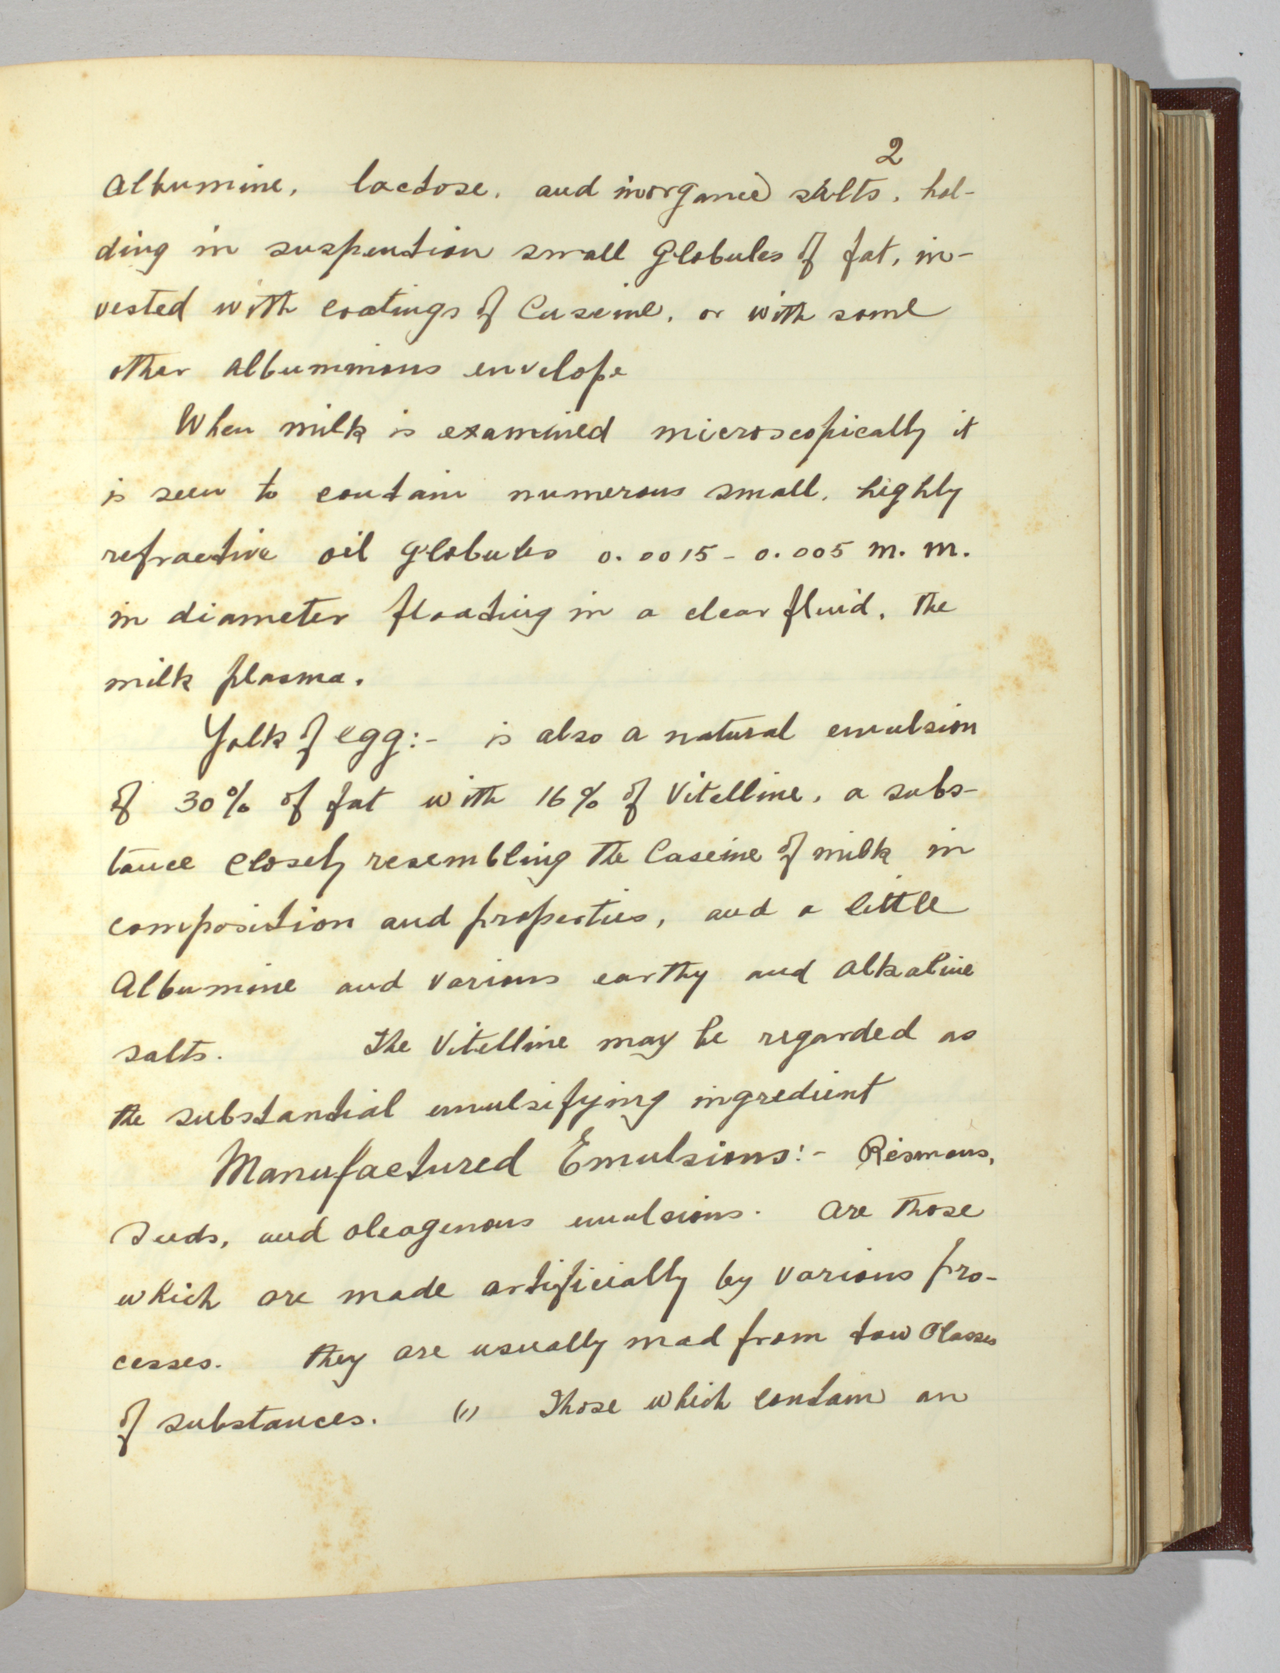 2
Albumine, lactose, and inorganic salts, hol-
ding in suspention small globules of fat, in-
vested with coatings of Caseine, or with some
other albuminous envelope
When milk is examined microscopically it
is seen to contain numerous small, highly
refractive oil globules 0.0015 - 0.005 m.m.
in diameter floating in a clear fluid, the
milk plasma.
Yolk of egg:- is also a natural emulsion
of 30% of fat with 16% of Vitelline, a subs-
tance closely resembling the Caseine of milk in
composition and properties, and a little
Albumine and various earthy and alkaline
salts. The Vitelline may be regarded as
the substantial emulsifying ingredient
Manufactured Emulsions:- Resinous,
Seeds, and oleagenous emulsions. are those
which are made artificially by various pro-
cesses. they are usually mad from tow Classes
of substances. (1) Those which contain an